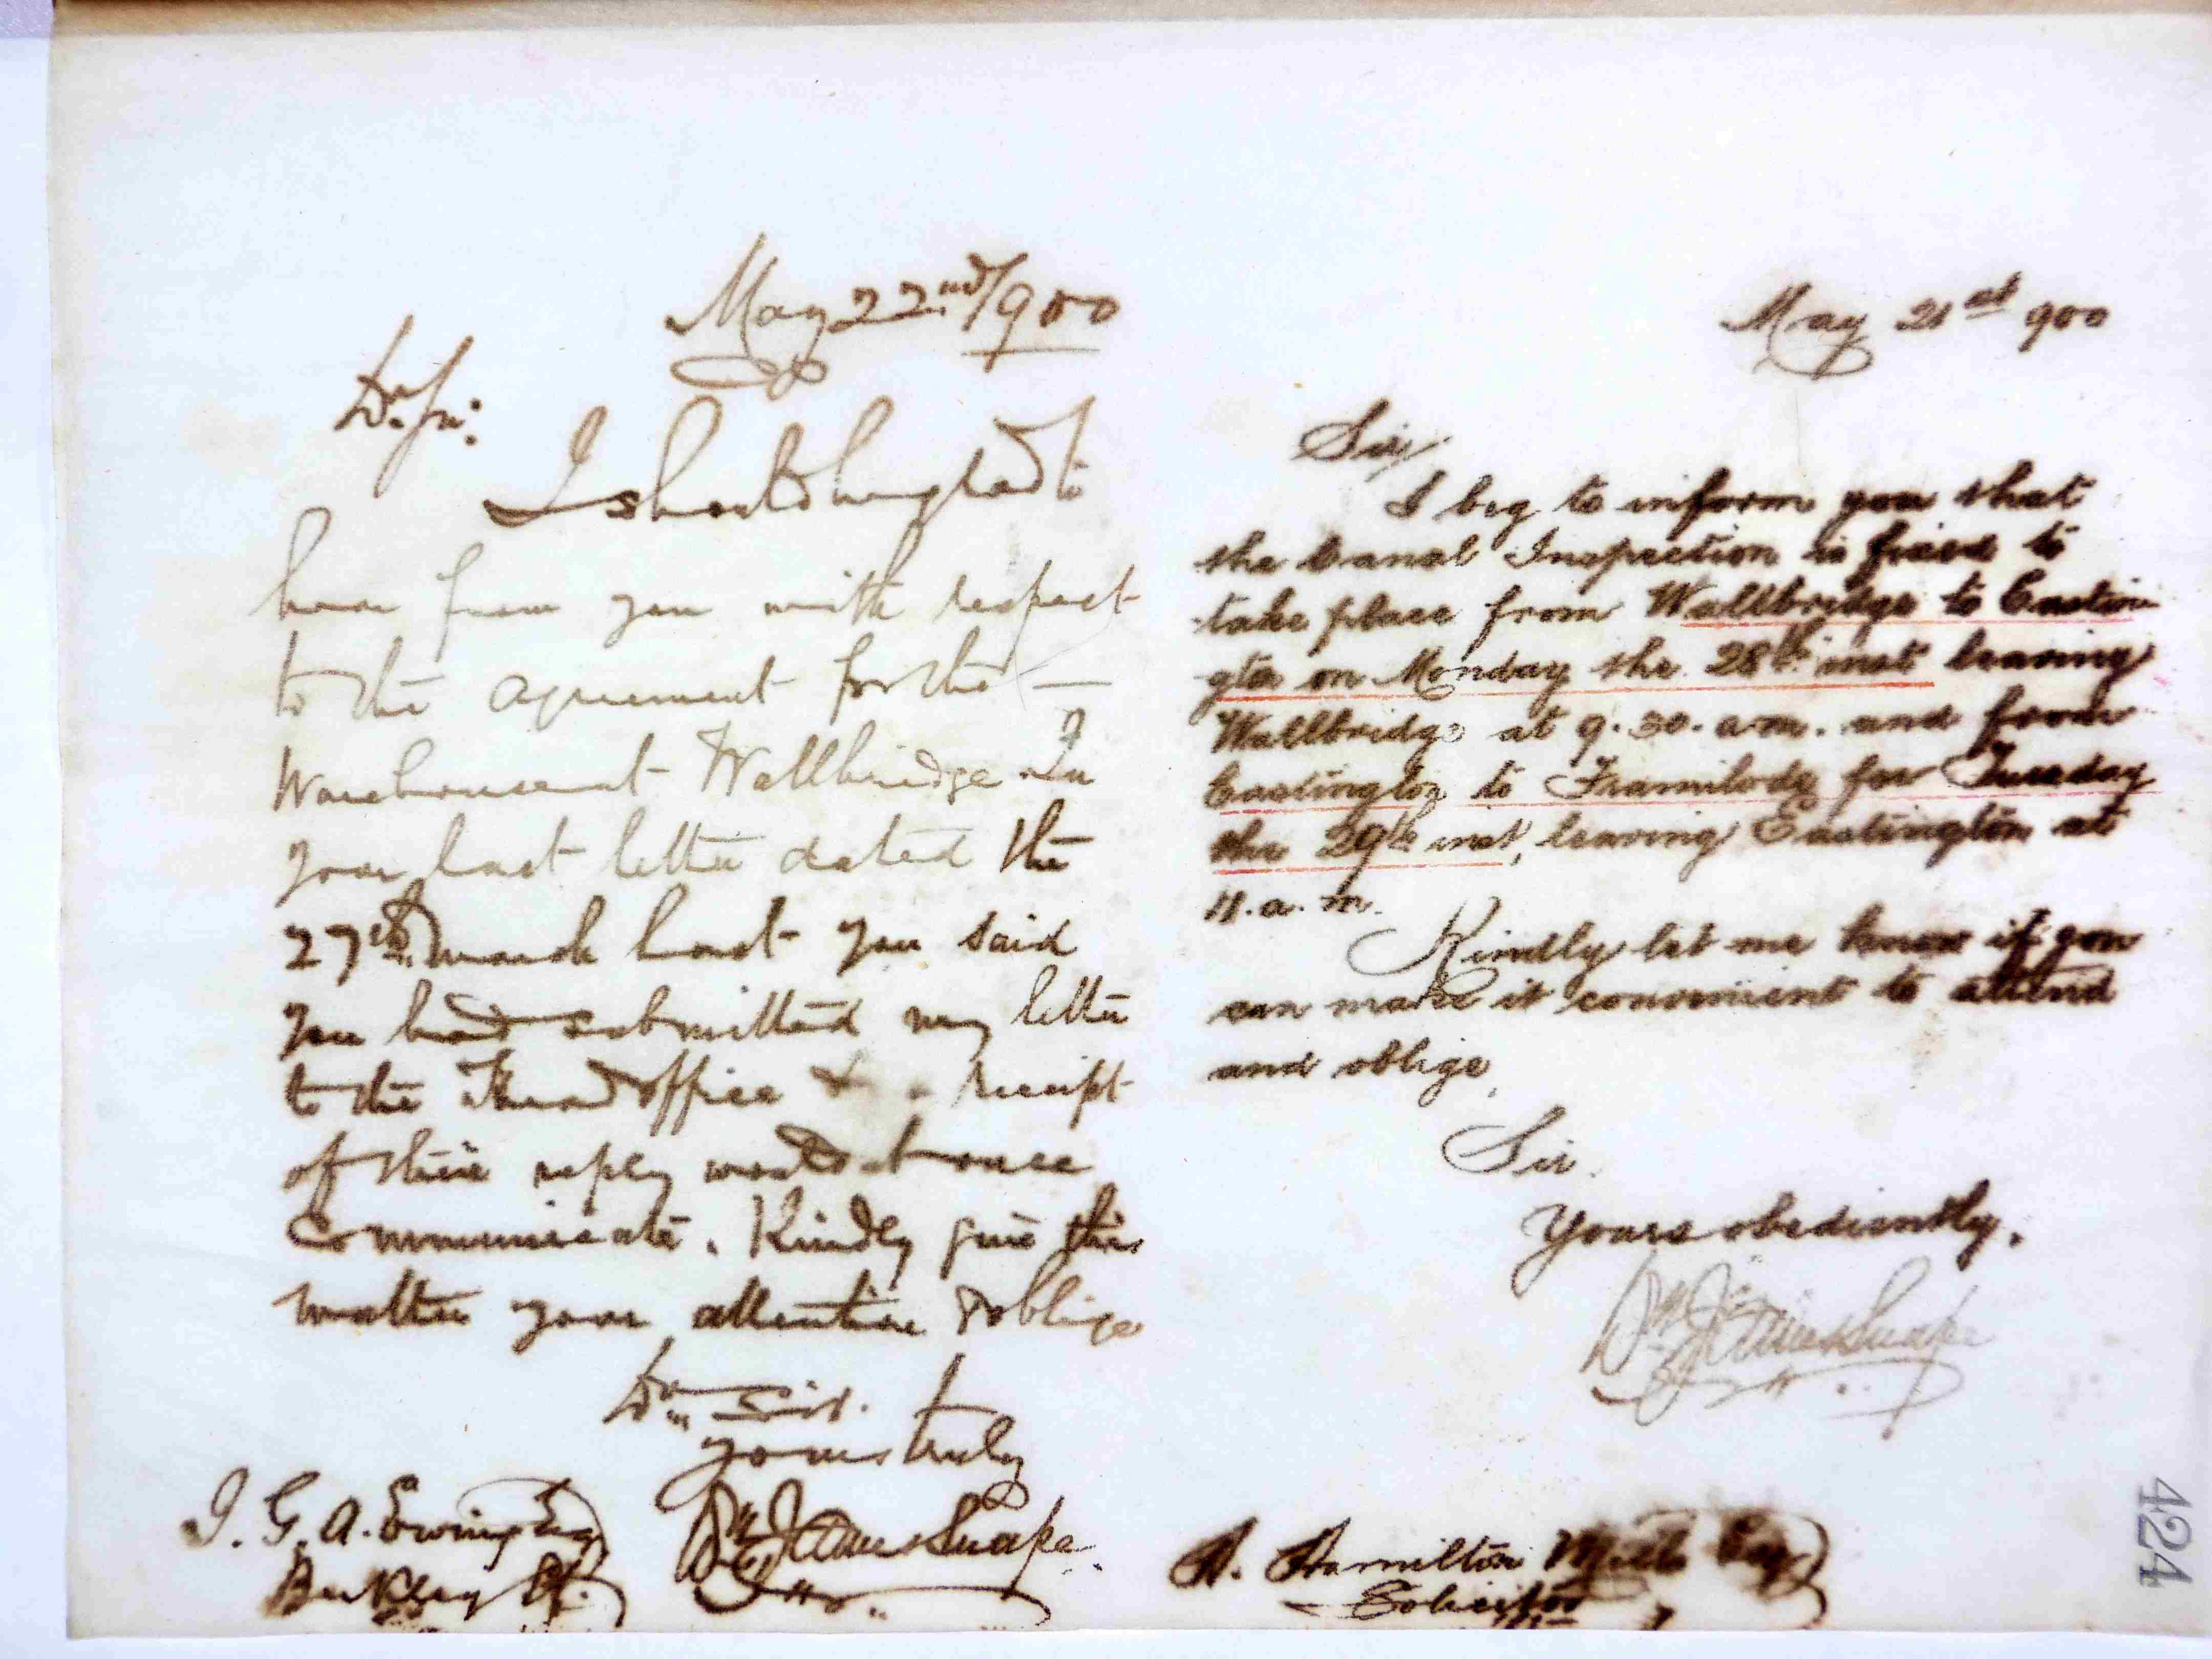 May 22nd/900
Dr Sir:
I should be glad to
hear from you with respect
to the agreement for the —
Warehouse at Wallbridge In
your last letter dated the
27th March last you said
you had submitted my letter
to the Head office & receipt
of their reply would at once
Communicate. Kindly give this
matter your attention & oblige
Dr Sir.
yours truly
Wm James Snape
J. G. A. Ewing Esq
Berkley St.
May 21st 900
Sir,
I beg to inform you that
the Canal Inspection is fixed to
take place from Wallbridge to Eastin
gton on Monday the 28th inst leaving
Wallbridge at 9.30. a.m. and from
Eastington to Framilode for Tuesday
the 29th inst, leaving Eastington at
11.a.m.
Kindly let me know if you
can make it convenient to attend
and oblige,
Sir.
Yours obediently,
Wm James Snape
H. Hamilton Mills Esq
Solicitor
424